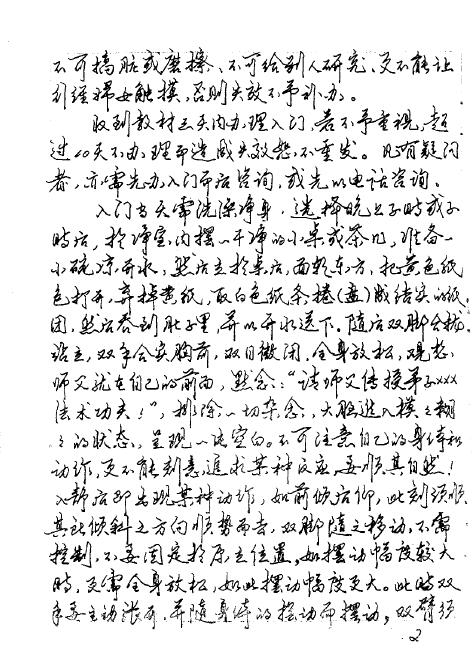 不可搞脏或磨擦、不可给别人研究、更不能让
引经妇女触摸,否则失效不予补办。
收到教材三天内办理入门,若不予重视,超
过10天不办理而造成失效恕不重发。凡有疑问
者,亦需先办入门而后咨询,或先以电话咨询。
入门当天需洗澡净身,选择晚上子时或子
时后,於净室内摆一干净的小桌或茶几,准备一
小碗凉开水,然后立於桌后,面朝东方,把黄色纸
包打开,弃掉黄纸,取白色纸条捲(叠)成结实的纸
团,然后吞到肚子里,并以开水送下。随后双脚合拢
站立,双手合实胸前,双目微闭,全身放松,观想
师父就在自己的前面,默念:“请师父传接弟子xxx
法术功夫!”,排除一切杂念,大脑进入模模糊
糊的状态,呈现一片空白。不可注意自己的身体和
动作,更不能刻意追求某种反应,要顺其自然!
入静后即出现某种动作,如前倾后仰,此刻须顺
其所倾斜之方向顺势而去,双脚随之移动,不需
控制,不要固定於原立位置,如摆动幅度较大
时,更需全身放松,如此摆动幅度更大。此时双
手要主动张开,并随身体的摆动而摆动,双臂须
2